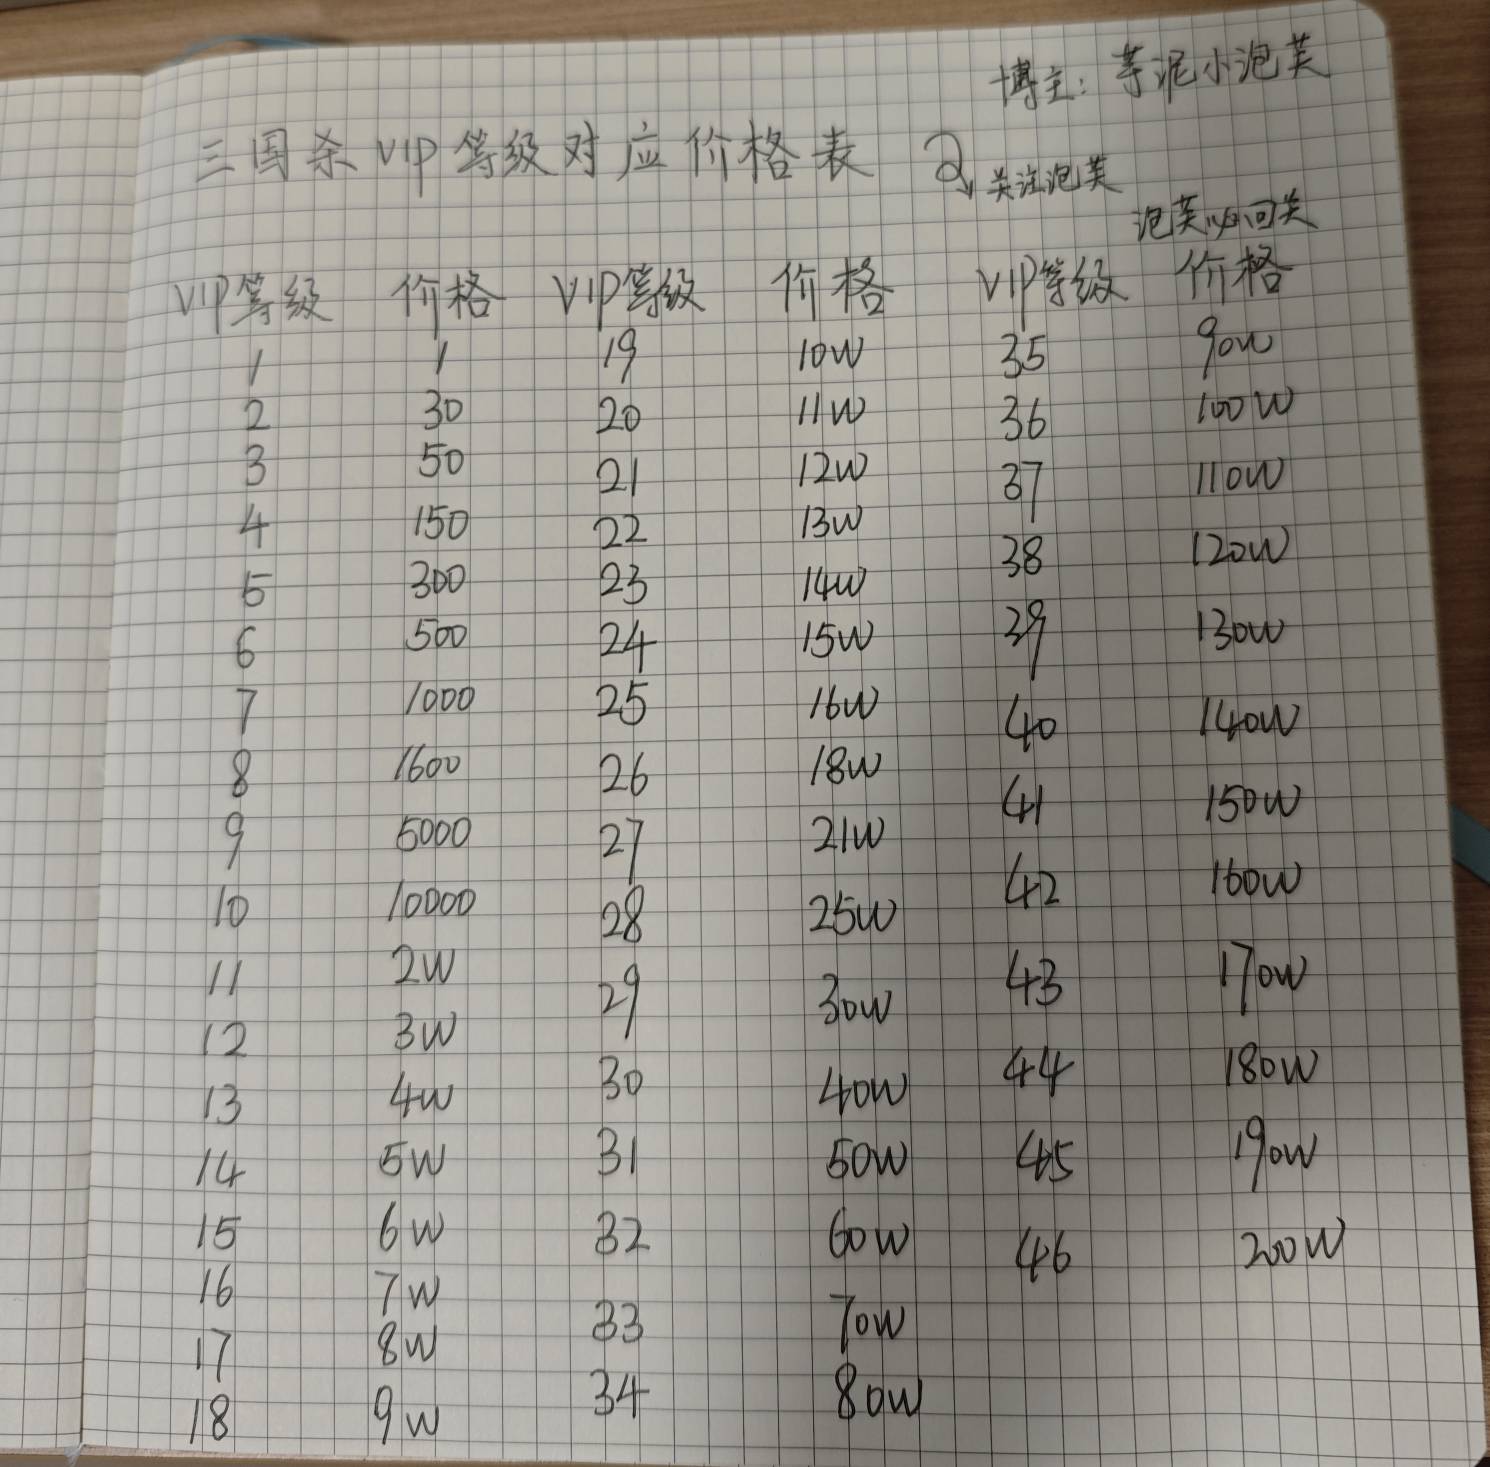 博主：芋泥小泡芙
三国杀VIP等级对应价格表
关注泡芙
泡芙必回关
VIP等级 价格 VIP等级 价格 VIP等级 价格
1 1 19 10W 35 90W
2 30 20 11W 36 100W
3 50 21 12W 37 110W
4 150 22 13W 38 120W
5 300 23 14W 39 130W
6 500 24 15W 40 140W
7 1000 25 16W 41 150W
8 1600 26 18W 42 160W
9 5000 27 21W 43 170W
10 10000 28 25W 44 180W
11 2W 29 30W 45 190W
12 3W 30 40W 46 200W
13 4W 31 50W
14 5W 32 60W
15 6W 33 70W
16 7W 34 80W
17 8W
18 9W